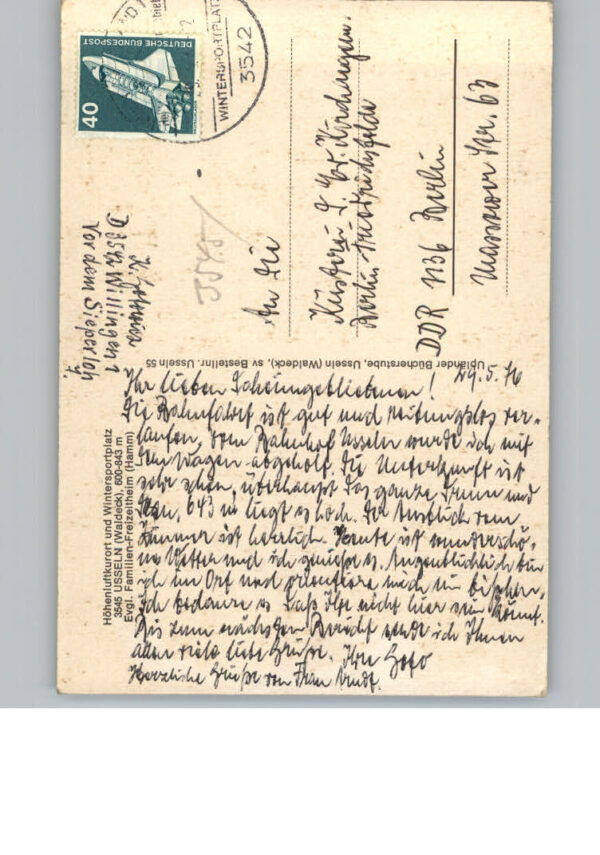 Höhenluftkurort und Wintersportplatz
3545 USSELN (Waldeck), 600-843 m
Evgl. Familien-Freizeitheim (Hamm)
Ihr lieben Daheimgebliebenen! 29.5.76
Die Bahnfahrt ist gut und reibungslos ver-
laufen, vom Bahnhof Usseln wurde ich mit
dem Wagen abgeholt. Die Unterkunft ist
sehr schön, überhaupt das ganze Drum und
Dran, 643 m liegt es hoch. Der Ausblick vom
Zimmer ist herrlich. Heute ist wunderschö-
nes Wetter und ich genieße es. Augenblicklich bin
ich im Ort und orientiere mich ein bißchen.
Ich bedaure es daß Ihr nicht hier sein könnt.
Bis zum nächsten Bericht sende ich Ihnen
allen viele liebe Grüße. Ihre
Herzliche Grüße von Frau
Upländer Bücherstube, Usseln (Waldeck), sv Bestellnr. Usseln 55
D 3542 Willingen 1
Vor dem Sieperloh
3545
An die
Küsterei d. Ev.
Berlin-Friedrichsfelde
DDR 1136 Berlin
Str. 63
DEUTSCHE BUNDESPOST
40
WINTERSPORTPLATZ
3542